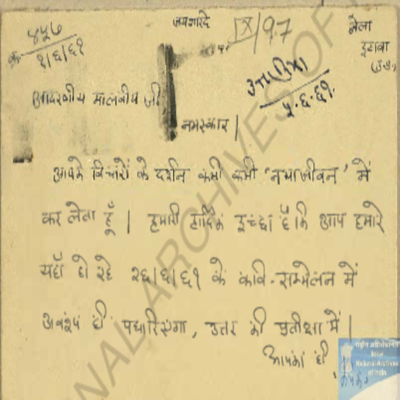 ४५७
१/६/६१
जयशारदे
IX/97
बेला
इटावा
(उ.प्र.)
५.६.६१
आदरणीय मालवीय जी
नमस्कार।
आपके विचारों के दर्शन कभी कभी "नवाजीवन" में
कर लेता हूँ। हमारी हार्दिक इच्छा है कि आप हमारे
यहाँ हो रहे २६/६/६१ के कवि-सम्मेलन में
अवश्य ही पधारिएगा, उत्तर की प्रतीक्षा में।
आपका ही
NATIONAL ARCHIVES OF